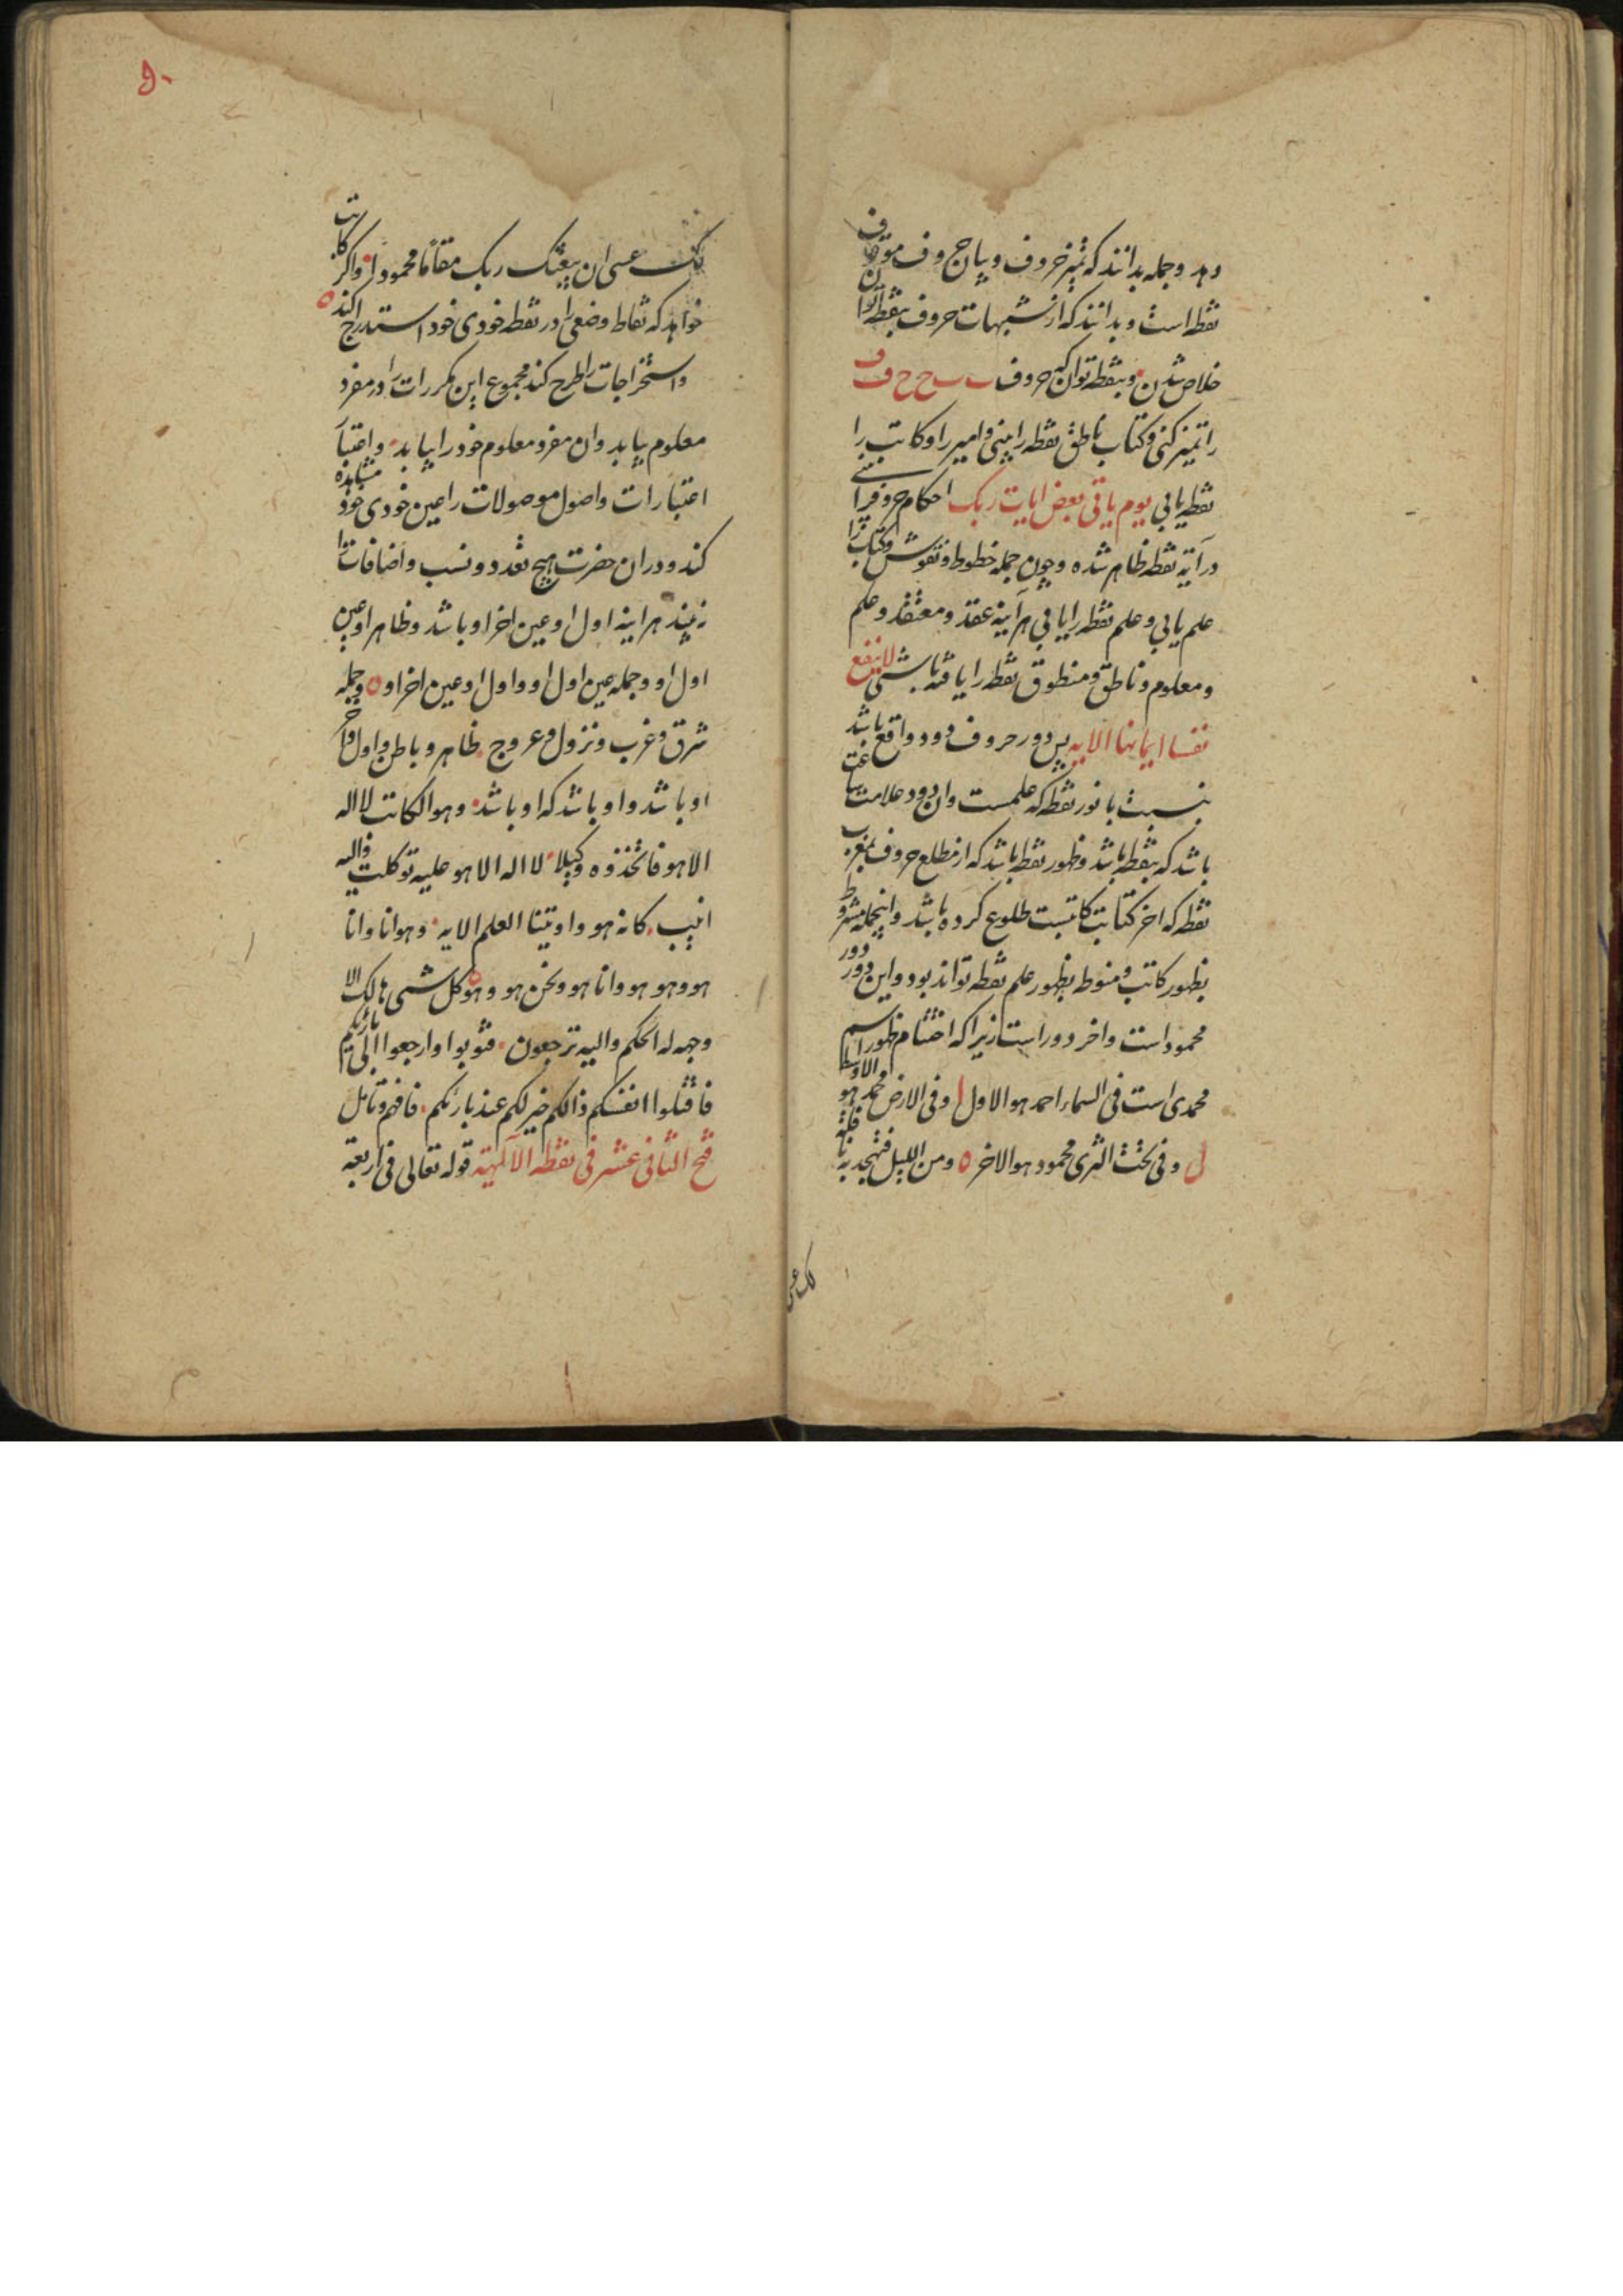 دهد و جمله بدانند که تمیز حروف و بیاج حروف موقوف آن
نقطه است و بدانند که از شبهات حروف بنقطه توان
خلاص شدن و بنقطه توان که حروف ب ب ح ح ف ف
را تمیز کنی و کتاب ناطق نقطه را بینی و امیر را و کاتب را
نقطه یابی یوم یاتی بعض ایات ربک احکام حروف را
در آیه نقطه ظاهر شده و چون جمله خطوط و نقوش و کتاب را
علم یابی و علم نقطه را یابی هر آینه عقد و معتقد و علم
و معلوم و ناطق و منطوق نقطه را یافته باشی لا ینفع
نفسا ایمانها الایه پس دور حروف دود واقع باشد
بنسبت با نور نقطه که علمست وان دود علامت ساعت
باشد که بنقطه باشد و ظهور نقطه باشد که از مطلع حروف بمغرب
نقطه که اخر کتابت کاتبست طلوع کرده باشد و اینجمله مشروط
بظهور کاتب و منوط بظهور علم نقطه تواند بود و این دور دور
محمود است و اخر دور است زیرا که اختتام ظهور اسم
محمدی است فی السماء احمد هو الاول و فی الارض محمد هو الاوسط
و فی تحت الثری محمود هو الاخر ه و من اللیل فتهجد به نافلة
لک عسی
لک عسی ان یبعثک ربک مقاما محمودا و اکر کاتب
خواهد که نقاط وضعی را در نقطه خودی خود استدراج کند ه
و استخراجات را طرح کند مجموع این مکررات را در مفرد
معلوم بیابد و ان مفرد معلوم خود را بیابد و اعتبار
اعتبارات و اصول موصولات را عین خودی خود مشاهده
کند و دران حضرت هیچ تعدد و نسب و اضافات را
نبیند هر اینه اول او عین اخر او باشد و ظاهر او عین
اول او و جمله عین اول او و اول او عین اخر او ه و جمله
شرق و غرب و نزول و عروج ظاهر و باطن و اول و اخر
او باشد و او باشد که او باشد و هو الکاتب لا اله
الا هو فاتخذوه وکیلا لا اله الا هو علیه توکلت و الیه
انیب کانه هو و اوتینا العلم الایه و هو انا و انا
هو و هو هو و انا هو و نحن هو و هو کل شیء هالک الا
وجهه له الحکم و الیه ترجعون فتوبوا وارجعوا الی بارئکم
فاقتلوا انفسکم ذالکم خیر لکم عند بارئکم فافهم و تامل
فتح الثانی عشر فی نقطة الالهیة قوله تعالی فی اربعة